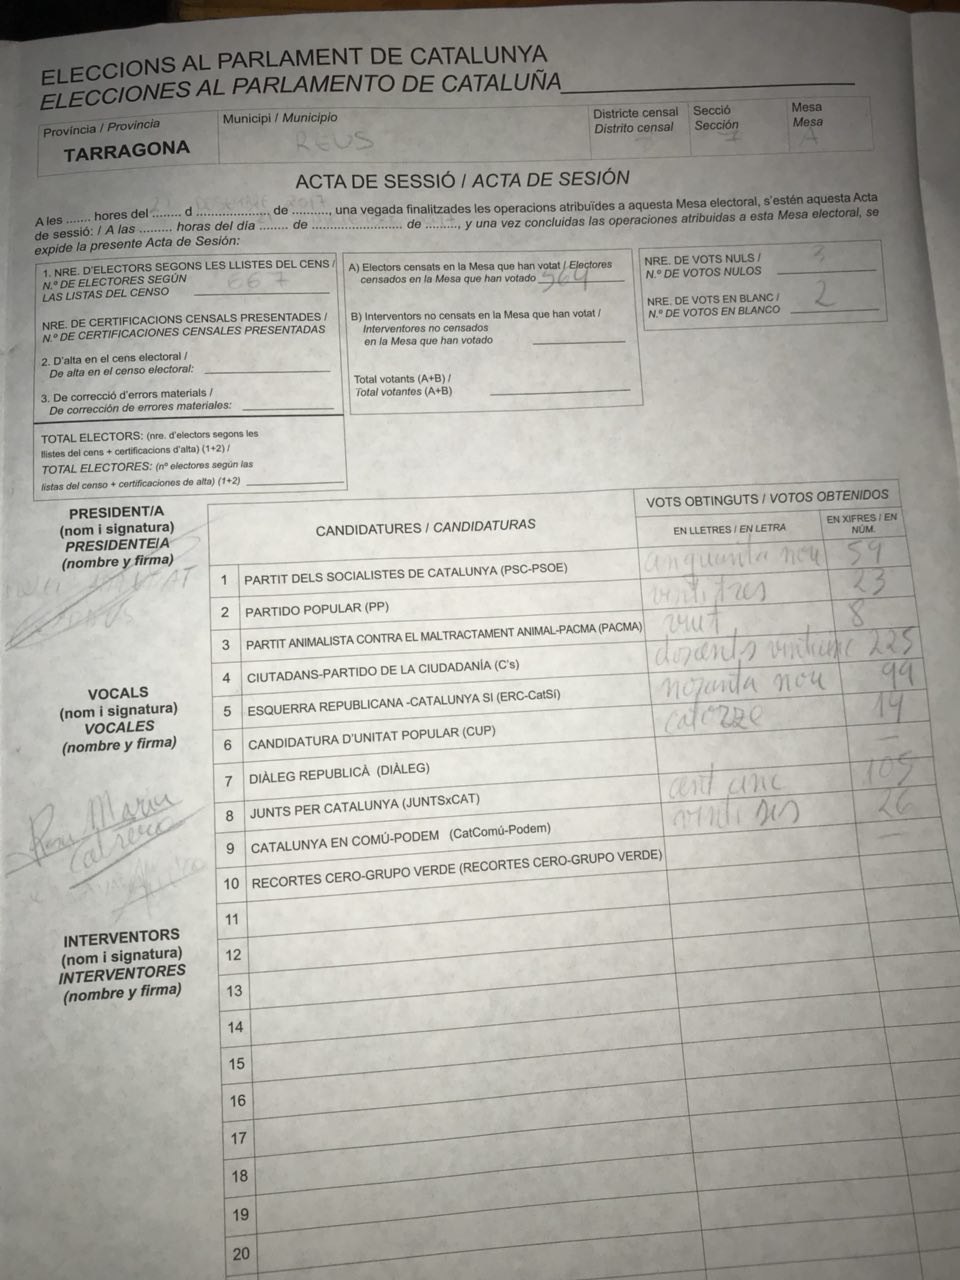 ELECCIONS AL PARLAMENT DE CATALUNYA
ELECCIONES AL PARLAMENTO DE CATALUÑA
Província / Provincia
TARRAGONA
Municipi / Municipio
REUS
Districte censal
Distrito censal
Secció
Sección
7
Mesa
Mesa
A
ACTA DE SESSIÓ / ACTA DE SESIÓN
A les ....... hores del ........ d .................... de .........., una vegada finalitzades les operacions atribuïdes a aquesta Mesa electoral, s'estén aquesta Acta
de sessió: / A las ......... horas del día ........ de ........................ de ........, y una vez concluidas las operaciones atribuidas a esta Mesa electoral, se
expide la presente Acta de Sesión:
1. NRE. D'ELECTORS SEGONS LES LLISTES DEL CENS /
N.º DE ELECTORES SEGÚN
LAS LISTAS DEL CENSO 667
NRE. DE CERTIFICACIONS CENSALS PRESENTADES /
N.º DE CERTIFICACIONES CENSALES PRESENTADAS
2. D'alta en el cens electoral /
De alta en el censo electoral:
3. De correcció d'errors materials /
De corrección de errores materiales:
TOTAL ELECTORS: (nre. d'electors segons les
llistes del cens + certificacions d'alta) (1+2) /
TOTAL ELECTORES: (nº electores según las
listas del censo + certificaciones de alta) (1+2)
A) Electors censats en la Mesa que han votat / Electores
censados en la Mesa que han votado 564
B) Interventors no censats en la Mesa que han votat /
Interventores no censados
en la Mesa que han votado
Total votants (A+B) /
Total votantes (A+B)
NRE. DE VOTS NULS /
N.º DE VOTOS NULOS 3
NRE. DE VOTS EN BLANC /
N.º DE VOTOS EN BLANCO 2
PRESIDENT/A
(nom i signatura)
PRESIDENTE/A
(nombre y firma)
VOCALS
(nom i signatura)
VOCALES
(nombre y firma)
Maria
Cabrera
INTERVENTORS
(nom i signatura)
INTERVENTORES
(nombre y firma)
CANDIDATURES / CANDIDATURAS
VOTS OBTINGUTS / VOTOS OBTENIDOS
EN LLETRES / EN LETRA
EN XIFRES / EN NÚM.
1 PARTIT DELS SOCIALISTES DE CATALUNYA (PSC-PSOE) cinquanta nou 59
2 PARTIDO POPULAR (PP) vintitres 23
3 PARTIT ANIMALISTA CONTRA EL MALTRACTAMENT ANIMAL-PACMA (PACMA) vuit 8
4 CIUTADANS-PARTIDO DE LA CIUDADANÍA (C's) doscents vinticinc 225
5 ESQUERRA REPUBLICANA -CATALUNYA SÍ (ERC-CatSí) noranta nou 99
6 CANDIDATURA D'UNITAT POPULAR (CUP) catorze 14
7 DIÀLEG REPUBLICÀ (DIÀLEG) –
8 JUNTS PER CATALUNYA (JUNTSxCAT) cent cinc 105
9 CATALUNYA EN COMÚ-PODEM (CatComú-Podem) vintisis 26
10 RECORTES CERO-GRUPO VERDE (RECORTES CERO-GRUPO VERDE)
11
12
13
14
15
16
17
18
19
20